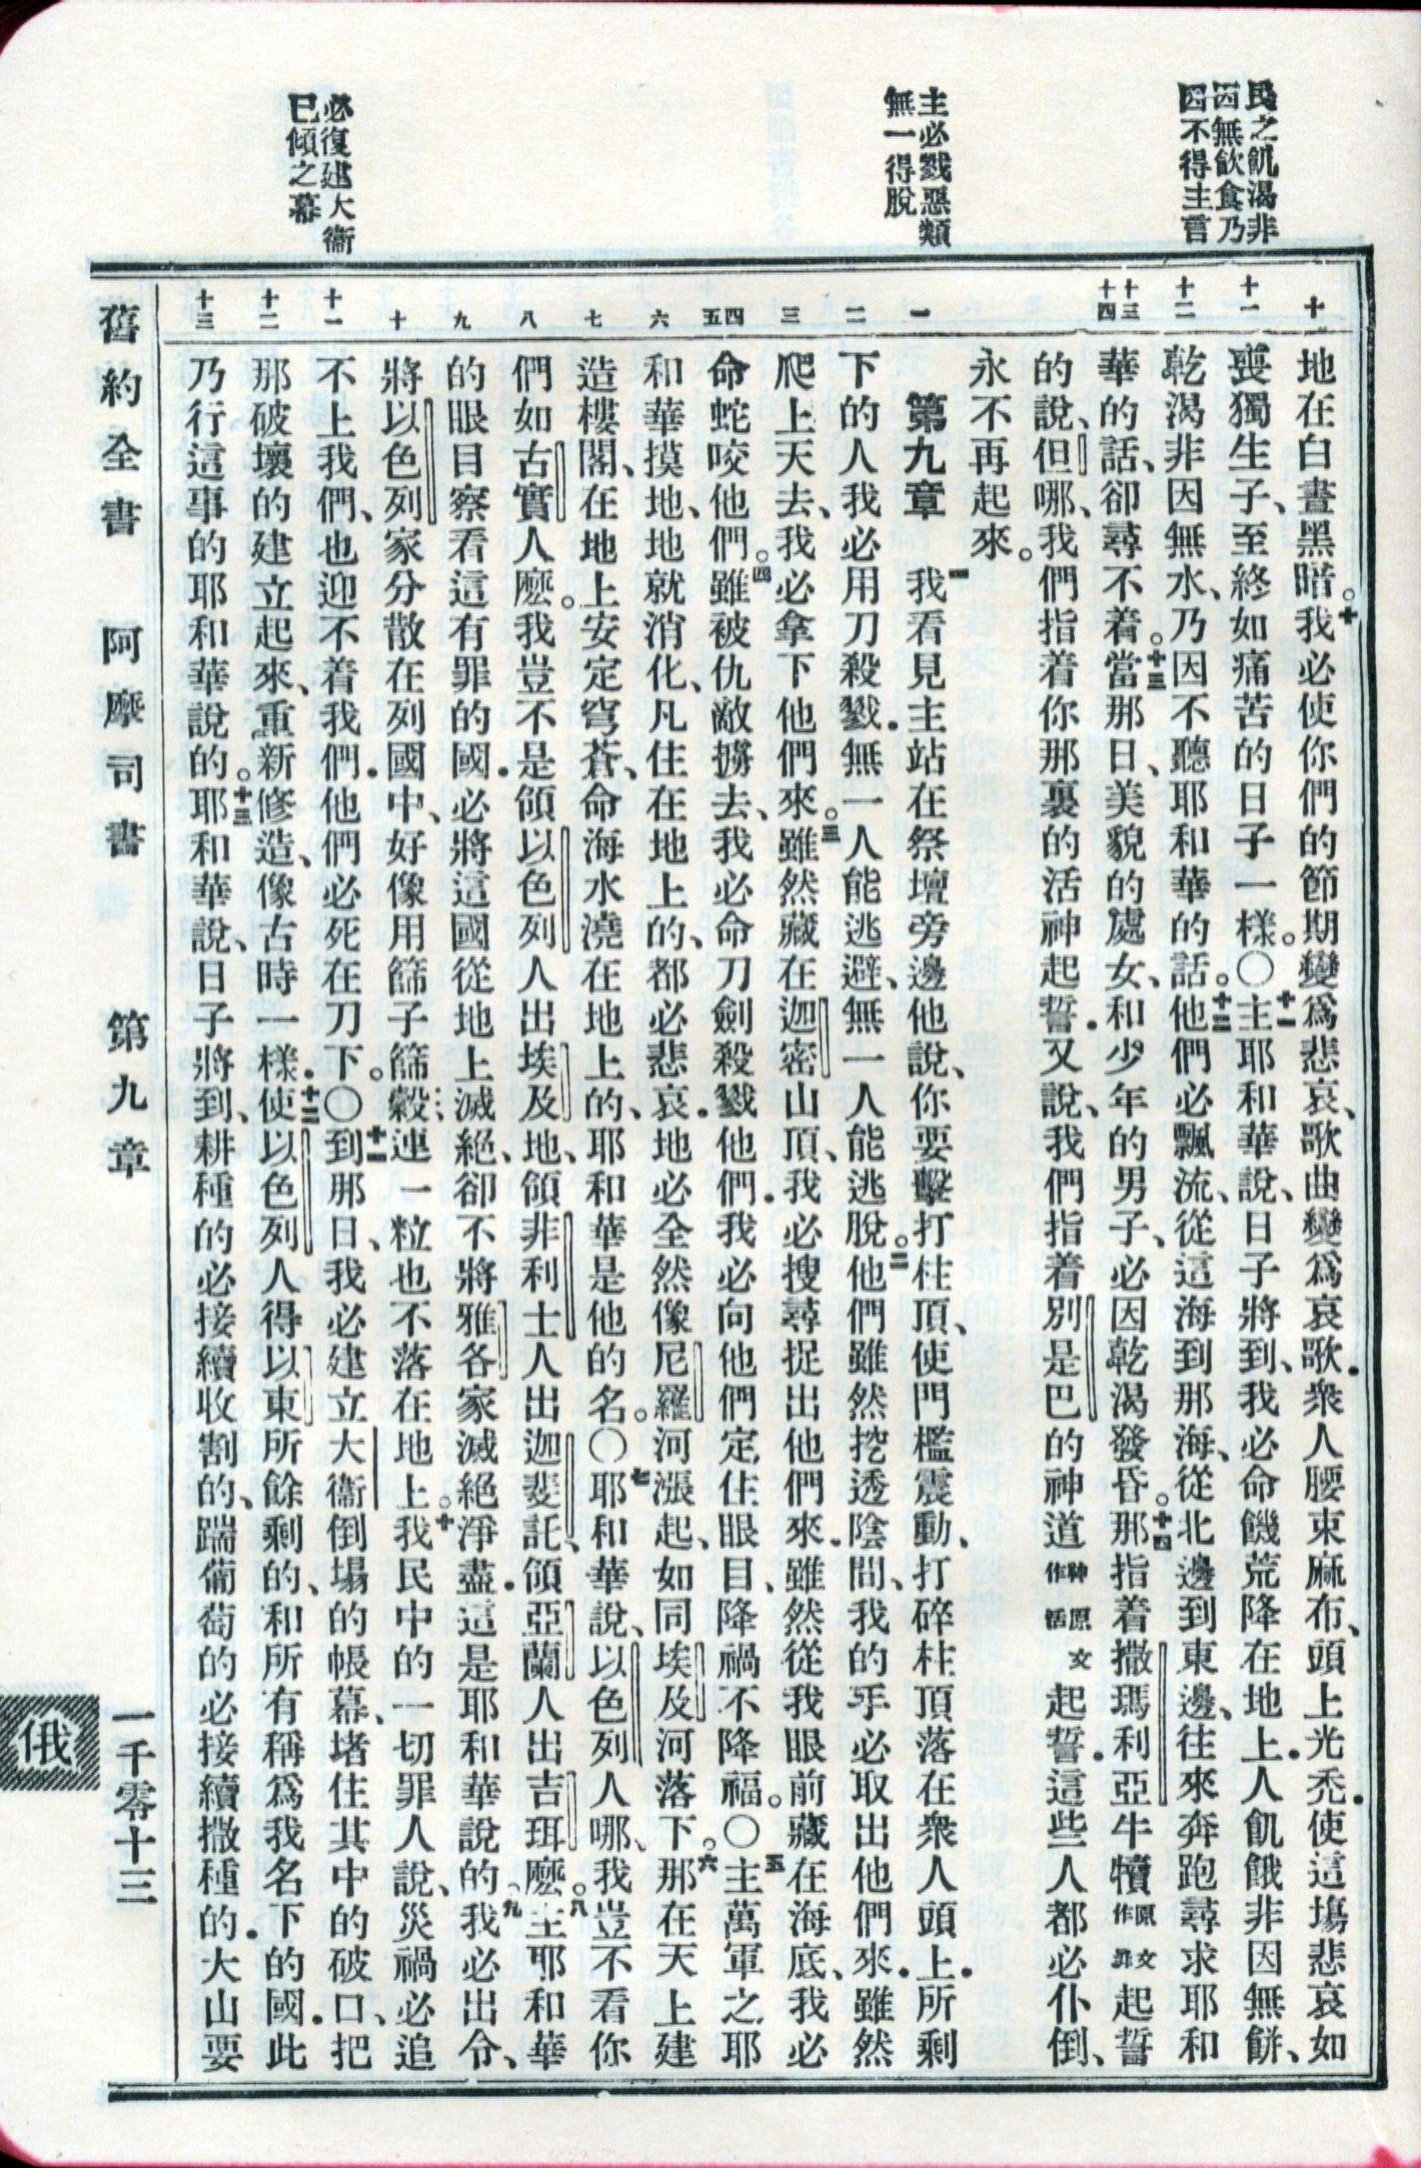 民之飢渴非
因無飲食乃
因不得主言
主必戮惡類
無一得脫
必復建大衞
已傾之幕
十
十一
十二
十三
十四
一
二
三
四
五
六
七
八
九
十
十一
十二
十三
地在白晝黑暗。十我必使你們的節期變爲悲哀、歌曲變爲哀歌．衆人腰束麻布、頭上光禿．使這塲悲哀如
喪獨生子、至終如痛苦的日子一樣。〇十一主耶和華說、日子將到、我必命饑荒降在地上．人飢餓非因無餅、
乾渴非因無水、乃因不聽耶和華的話。十二他們必飄流、從這海到那海、從北邊到東邊、往來奔跑尋求耶和
華的話、卻尋不着。十三當那日、美貌的處女、和少年的男子、必因乾渴發昏。十四那指着撒瑪利亞牛犢原文作罪起誓
的說、但哪、我們指着你那裏的活神起誓．又說、我們指着別是巴的神道神原文作活起誓．這些人都必仆倒、
永不再起來。
第九章 一我看見主站在祭壇旁邊他說、你要擊打柱頂、使門檻震動、打碎柱頂落在衆人頭上．所剩
下的人我必用刀殺戮．無一人能逃避、無一人能逃脫。二他們雖然挖透陰間、我的手必取出他們來．雖然
爬上天去、我必拿下他們來。三雖然藏在迦密山頂、我必搜尋捉出他們來．雖然從我眼前藏在海底、我必
命蛇咬他們。四雖被仇敵擄去、我必命刀劍殺戮他們．我必向他們定住眼目、降禍不降福。〇五主萬軍之耶
和華摸地、地就消化、凡住在地上的、都必悲哀．地必全然像尼羅河漲起、如同埃及河落下。六那在天上建
造樓閣、在地上安定穹蒼、命海水澆在地上的、耶和華是他的名。〇七耶和華說、以色列人哪、我豈不看你
們如古實人麽。我豈不是領以色列人出埃及地、領非利士人出迦斐託、領亞蘭人出吉珥麽。八主耶和華
的眼目察看這有罪的國．必將這國從地上滅絕、卻不將雅各家滅絕淨盡．這是耶和華說的。九我必出令、
將以色列家分散在列國中、好像用篩子篩穀、連一粒也不落在地上。十我民中的一切罪人說、災禍必追
不上我們、也迎不着我們．他們必死在刀下。〇十一到那日、我必建立大衞倒塌的帳幕、堵住其中的破口、把
那破壞的建立起來、重新修造、像古時一樣．十二使以色列人得以東所餘剩的、和所有稱爲我名下的國．此
乃行這事的耶和華說的。十三耶和華說、日子將到、耕種的必接續收割的、踹葡萄的必接續撒種的．大山要
舊約全書 阿摩司書 第九章 一千零十三
俄